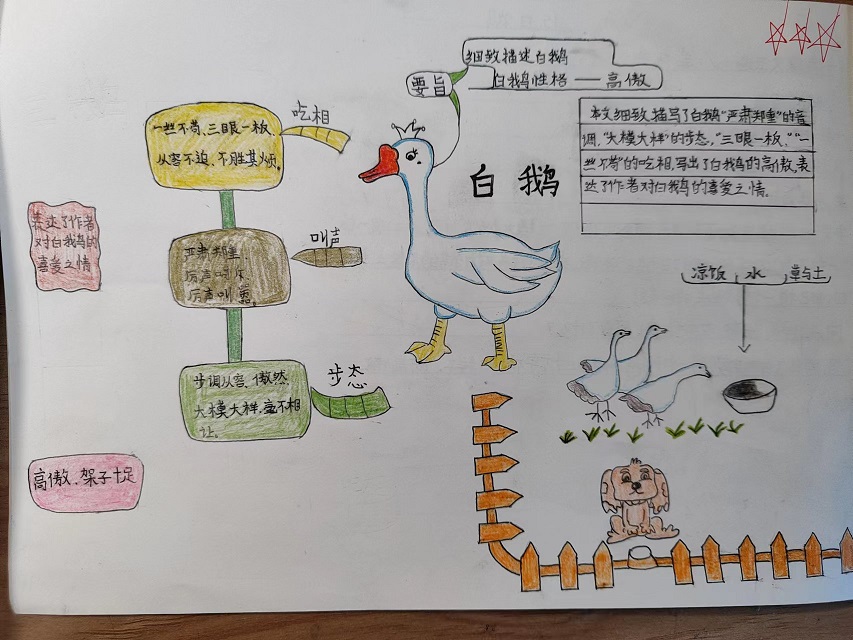 细致描述白鹅
要旨
白鹅性格——高傲
吃相
一丝不苟、三眼一板、
从容不迫、不胜其烦。
本文细致描写了白鹅“严肃郑重”的音
调，“大模大样”的步态，“三眼一板，”“一
丝不苟”的吃相，写出了白鹅的高傲，表
达了作者对白鹅的喜爱之情。
白鹅
表达了作者
对白鹅的
喜爱之情
叫声
严肃郑重、
厉声呵斥、
厉声叫嚣。
凉饭 水 草与土
步态
步调从容、傲然、
大模大样、毫不相
让。
高傲、架子十足